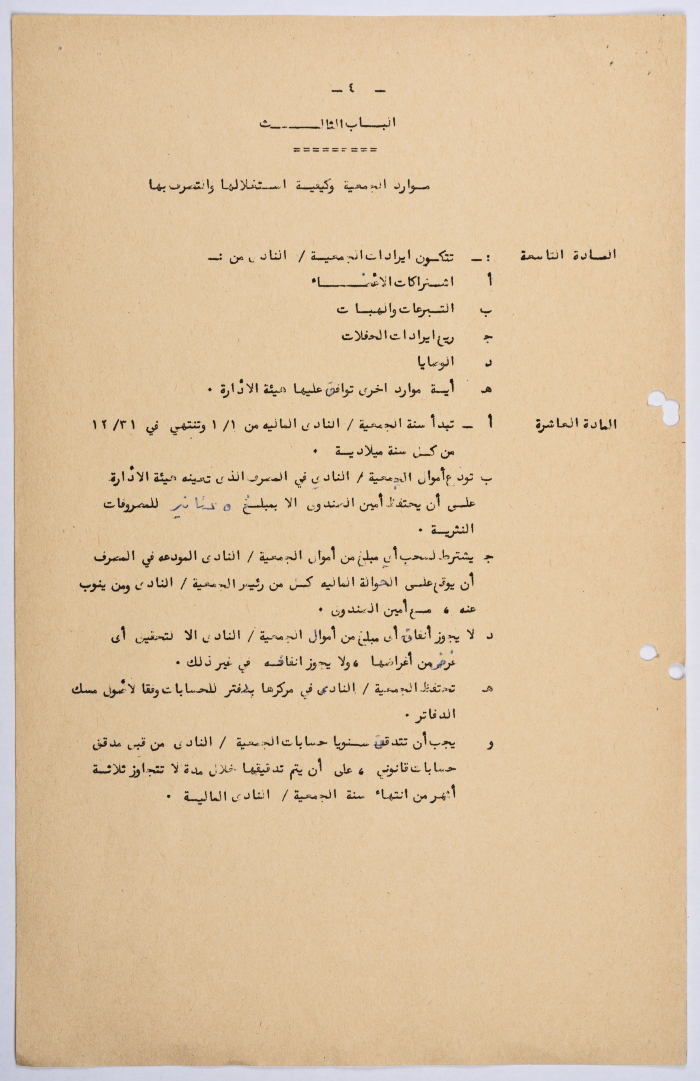 – ٤ –
البـــاب الثالــــــث
=========
مـوارد الجمعية وكيفيـة استـغلالها والتصرف بها
المـادة التاسعة :ـ تتكـون ايرادات الجمعيـة / النادى من :ـ
أ اشـتراكات الاعضـــــــاء
ب التـبرعات والهبـات
ج ريع ايرادات الحفلات
د الوصايا
هـ أيـة موارد اخرى توافق عليها هيئة الادارة .
المادة العاشرة أ ـ تبدأ سنة الجمعية / النادى الماليه من ١/١ وتنتهي في ١٢/٣١
من كـل سنة ميلاديـة .
ب تودع أموال الجمعية / النادي في المصرف الذى تعينه هيئة الادارة
علـى أن يحتفظ أمين الصندوق الا بمبلـغ ٥ دنانير للمصروفات
النثريـة .
ج يشترط لسحب أي مبلغ من أموال الجمعية / النادى المودعه في المصرف
أن يوقع علـى الحوالة الماليه كـل من رئيس الجمعية / النادى ومن ينوب
عنه ، مـع أمين الصندوق .
د لا يجوز أنفاق أى مبلغ من أموال الجمعية / النادى الا لتحقيق أى
غرض من أغراضها ، ولا يجوز انفاقـه في غير ذلك .
هـ تحتفظ الجمعية / النادى في مركزها بدفتر للحسابات وفقا لاصول مسك
الدفاتر .
و يجب أن تتدقق سـنويا حسابات الجمعية / النادى من قبل مدقق
حسابات قانوني ، على أن يتم تدقيقها خلال مدة لا تتجاوز ثلاثـة
أشهر من انتهاء سنة الجمعية / النادى الماليـة .